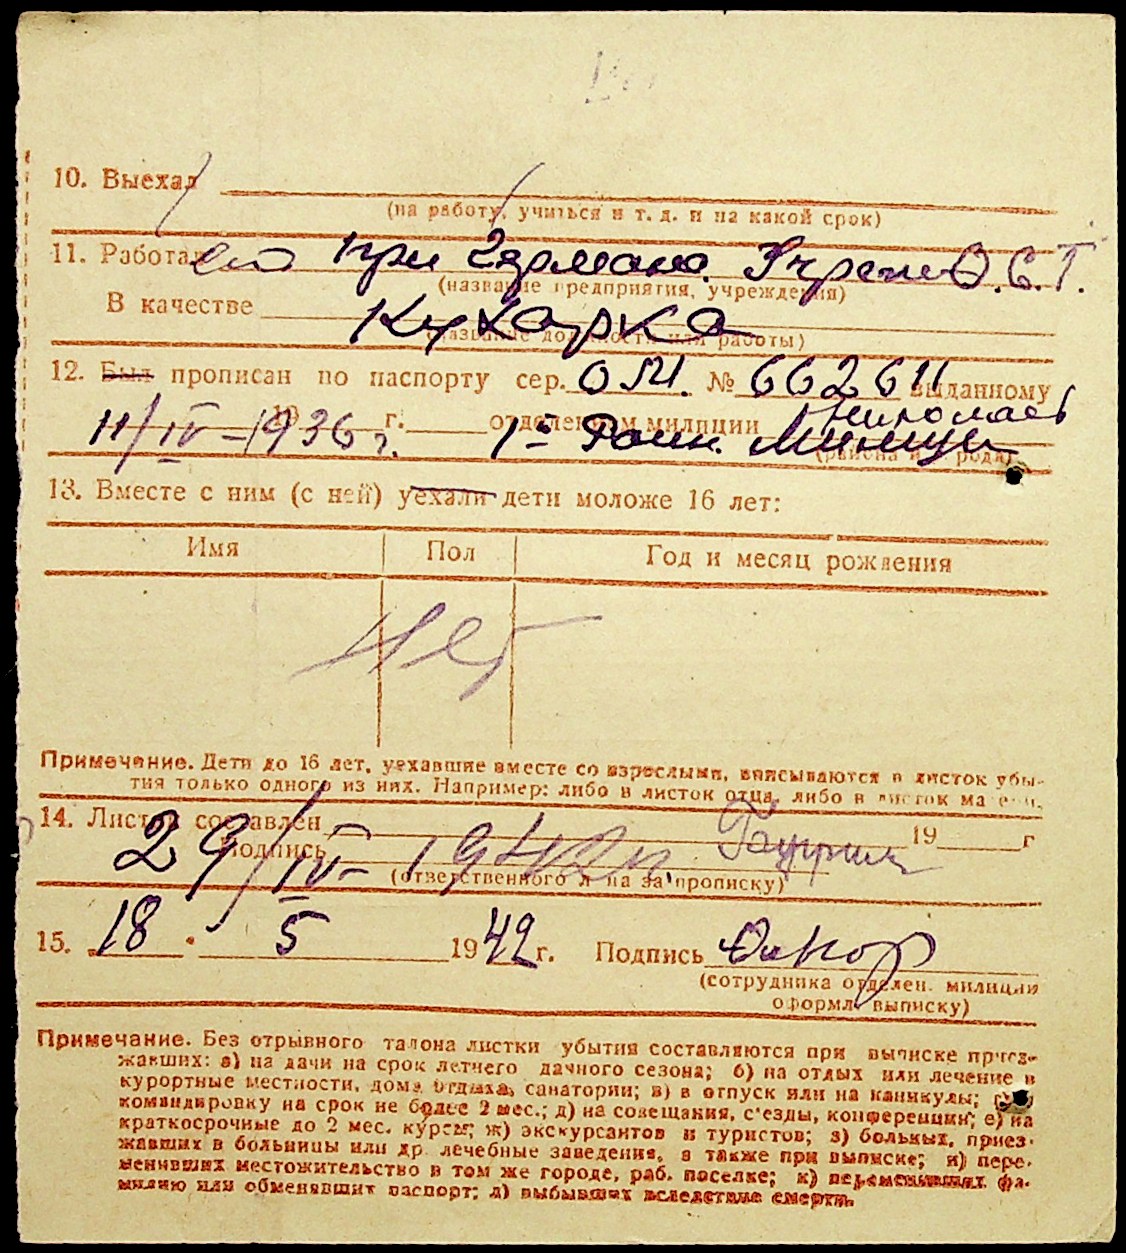 10. Выехал
(на работу, учиться и т. д. и на какой срок)
11. Работал при О.С.Т.
(название предприятия, учреждения)
В качестве Кухарка
(название должности или работы)
12. Был прописан по паспорту сер. ОМ. № 662611 выданному
11/IV-1936 г. 19 г. отделением милиции Николаев
1й Милиции
(района и города)
13. Вместе с ним (с ней) уехали дети моложе 16 лет:
Имя Пол Год и месяц рождения
Нет
Примечание. Дети до 16 лет, уехавшие вместе со взрослыми, вписываются в листок убы-
тия только одного из них. Например: либо в листок отца, либо в листок матери.
14. Листок составлен 19 г
29/IV- 1942 г. Подпись
(ответственного л на за прописку)
15. 18 . 5 1942 г. Подпись
(сотрудника отделен. милиции
оформл. выписку)
Примечание. Без отрывного талона листки убытия составляются при выписке приез-
жавших: а) на дачи на срок летнего дачного сезона; б) на отдых или лечение в
курортные местности, дома отдыха, санатории; в) в отпуск или на каникулы; г) в
командировку на срок не более 2 мес.; д) на совещания, с'езды, конференции; е) на
краткосрочные до 2 мес. курсы; ж) экскурсантов и туристов; з) больных, приез-
жавших в больницы или др. лечебные заведения, а также при выписке; и) пере-
менивших местожительство в том же городе, раб. поселке; к) переменивших фа-
милию или обменявших паспорт; л) выбывших вследствие смерти.